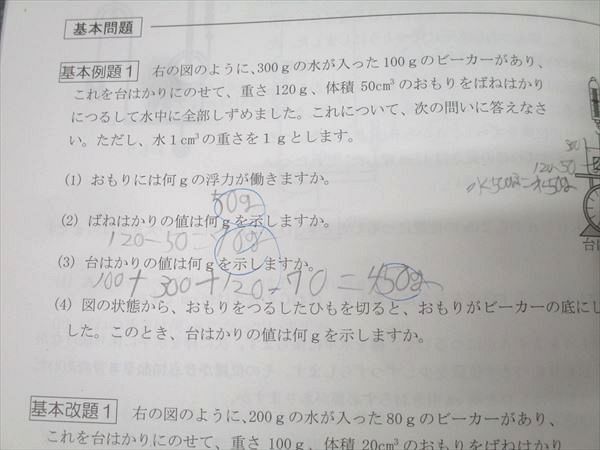 基本問題
基本例題1 右の図のように、300gの水が入った100gのビーカーがあり、
これを台はかりにのせて、重さ120g、体積50cm³のおもりをばねはかり
につるして水中に全部しずめました。これについて、次の問いに答えなさ
い。ただし、水1cm³の重さを1gとします。
(1) おもりには何gの浮力が働きますか。
50g
(2) ばねはかりの値は何gを示しますか。
120-50=70g
(3) 台はかりの値は何gを示しますか。
100+300+120-70=450g
(4) 図の状態から、おもりをつるしたひもを切ると、おもりがビーカーの底に
した。このとき、台はかりの値は何gを示しますか。
120-50
台
基本改題1 右の図のように、200gの水が入った80gのビーカーがあり、
これを台はかりにのせて、重さ100g、体積20cm³のおもりをばねはかり